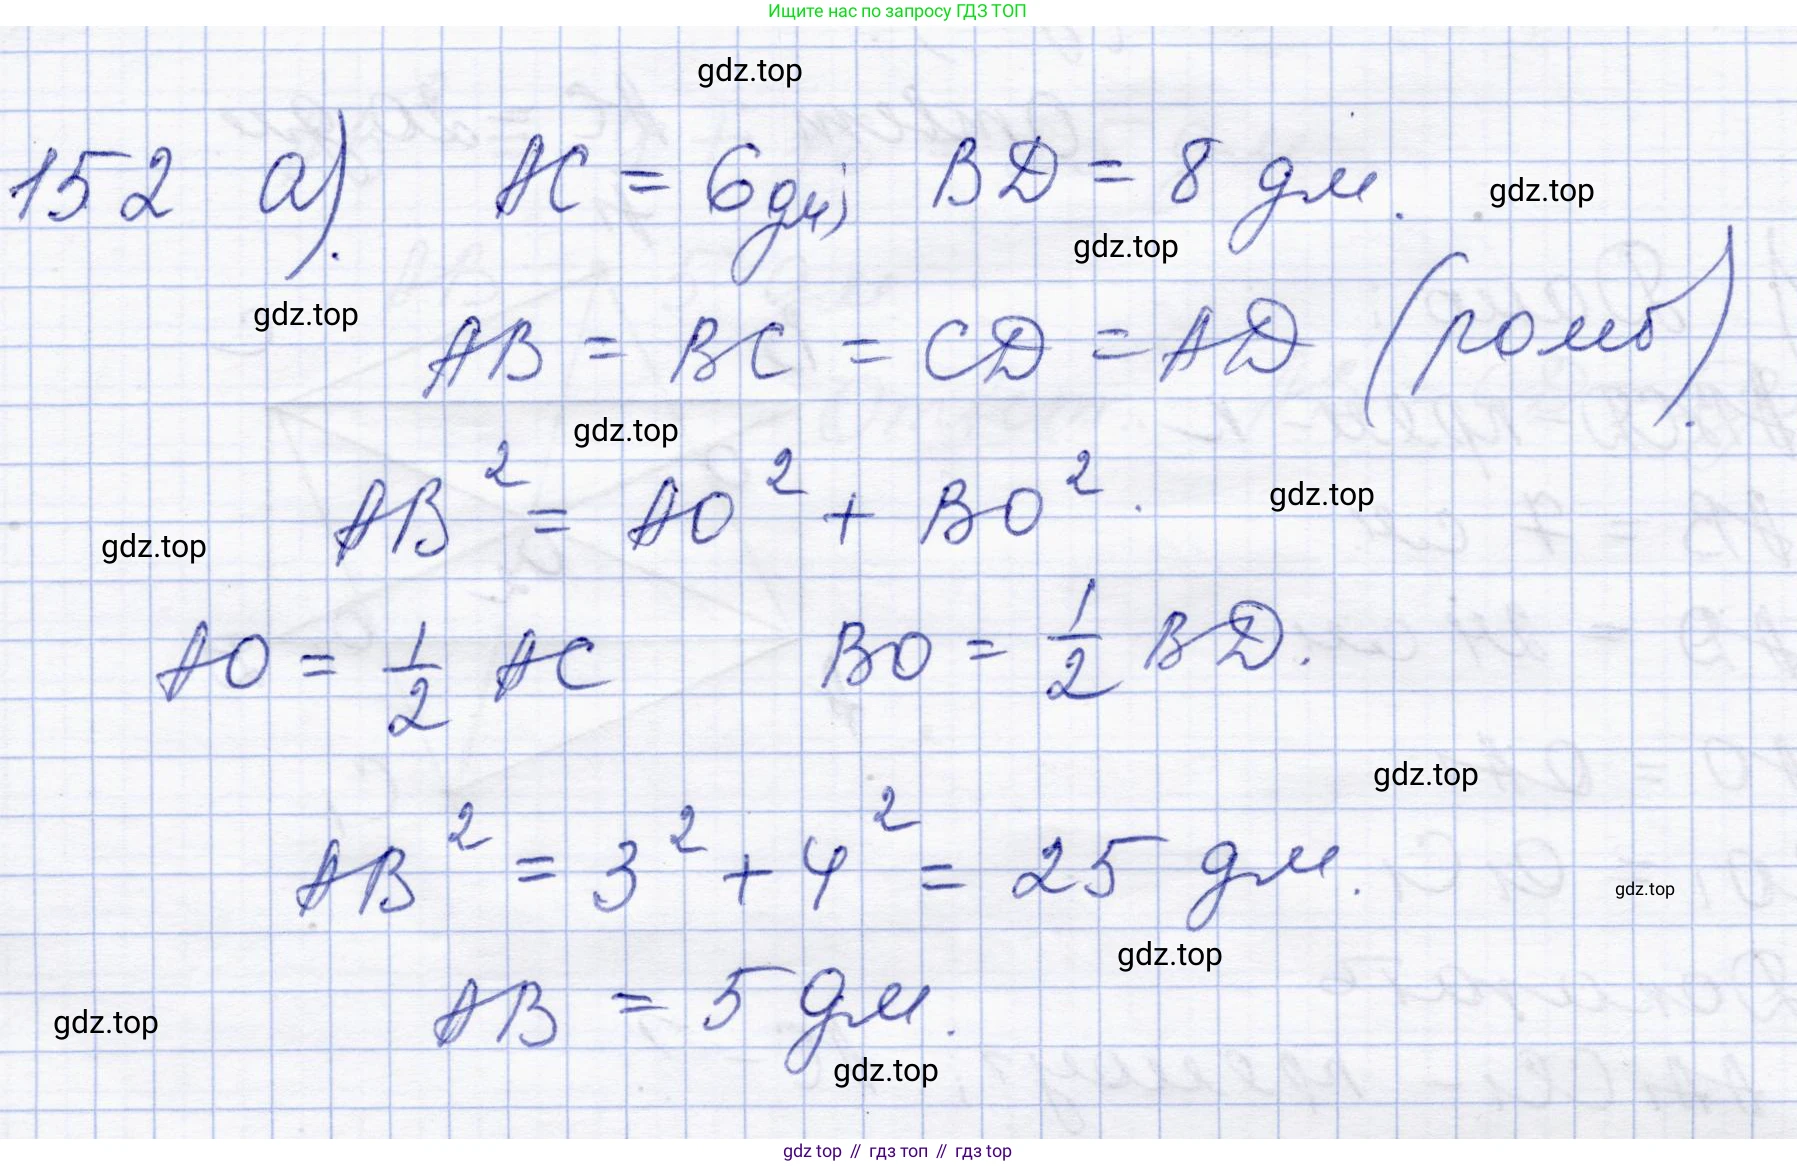 Ищите нас по запросу ГДЗ ТОП
gdz.top
152 а). AC = 6 дм; BD = 8 дм.
gdz.top
gdz.top
gdz.top
AB = BC = CD = AD (ромб).
gdz.top
AB² = AO² + BO².
gdz.top
gdz.top
AO = 1/2 AC BO = 1/2 BD.
gdz.top
AB² = 3² + 4² = 25 дм.
gdz.top
gdz.top
AB = 5 дм.
gdz.top
gdz.top
gdz.top // гдз топ // гдз top